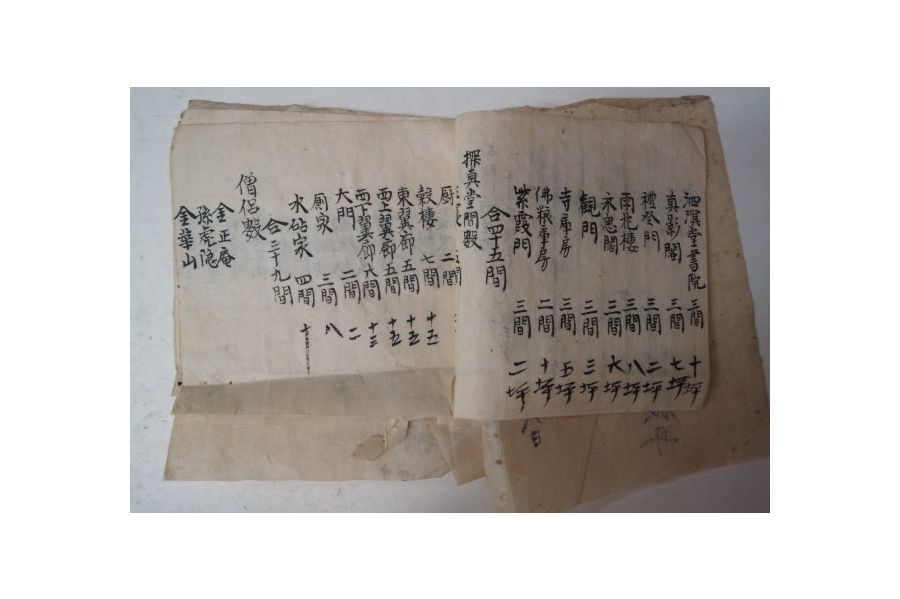 泗溟堂書院 三間 十坪
真影閣 三間 七坪
禮祭門 三間 二坪
雨花樓 三間 八坪
永思閣 三間 六坪
観門 三間 三坪
寺庫房 三間 五坪
佛粮庫房 二間 十坪
紫霞門 三間 二坪
合四十五間
探真堂間数
厨 二間
穀樓 七間 十五
東翼廊 五間 十五
西上翼廊 五間 十五
西下翼廊 六間 十三
大門 二間 二
厠家 三間 八
水砧家 四間 十
合三十九間
僧侶数
金正庵
孫虎隐
金華山